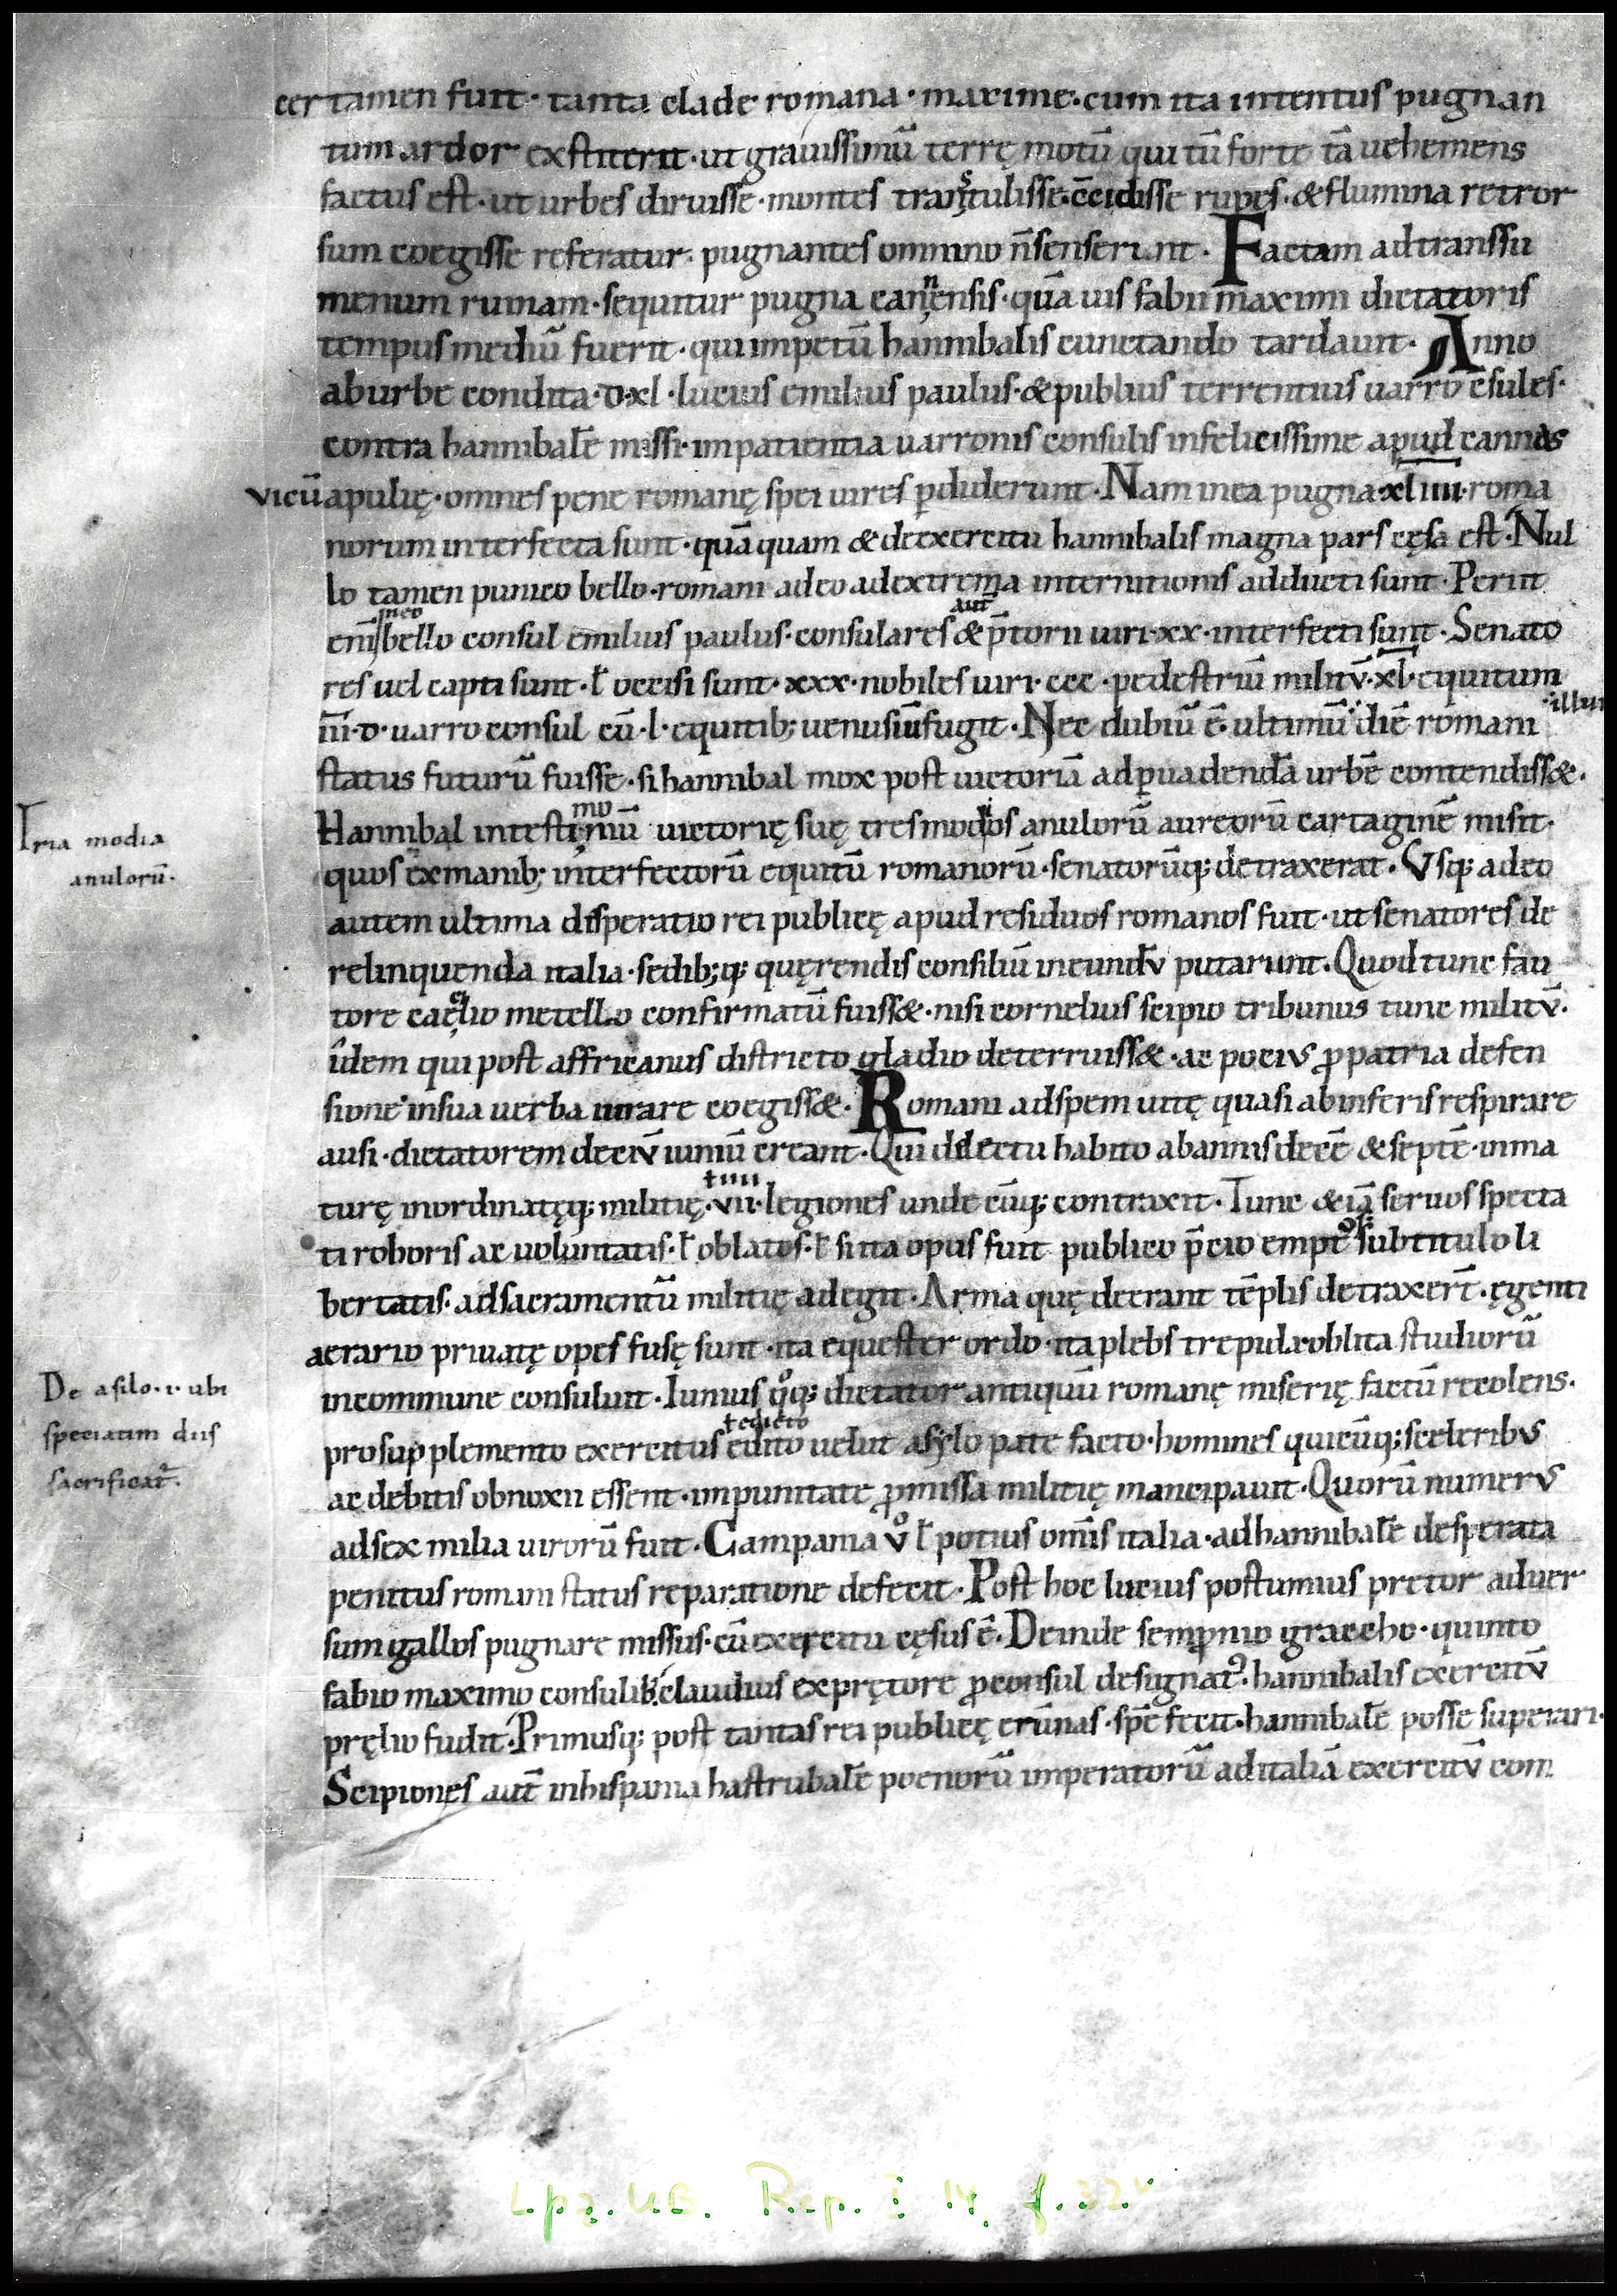 certamen fuit· tanta clade romana· maxime·cum ita intentus pugnan
tum ardor exstiterit·ut grauissimū terrę motū qui tū forte tā uehemens
factus est·ut urbes diruisse·montes transtulisse·c̄cidisse rupes·&flumina retror
sum coegisse referatur· pugnantes omnino n̄senserunt· Factam adtranssu
menum ruinam·sequitur pugna cannensis·quā uis fabii maximi dictatoris
tempus mediū fuerit·qui impetū hannibalis cunctando tardauit· Anno
aburbe condita·D·xl·lucius emilius paulus·&publius terrentius uarro c̄sules·
contra hannibalē missi·inpatientia uarronis consulis infelicissime apud cannas
vicū apulię·omnes pene romanę spei uires ꝑdiderunt·Nam inea pugna·xliiii·roma
norum interfecta sunt·quā quam & deexercitu hannibalis magna pars cęsa est·Nul
lo tamen punico bello·romani adeo adextrema internitionis adducti sunt·Periit
ineo
aut̄
eni᷑ bello consul emilius paulus·consulares & p̄torii uiri·xx·interfecti sunt·Senato
res uel capti sunt·ł occisi sunt·xxx·nobiles uiri·ccc·pedestriū militū·xl·equitum
illū
iii·D·uarro consul cū·l·equitib; uenusiūfugit·Nec dubiū ē·ultimū diē romani
status futurū fuisse·si hannibal mox post uictoriā adꝑuadendā urbē contendiss&·
mo
Hannibal intestimiū uictorię suę tres modios anulorū aureorū cartaginē misit·
Tria modia
anulorū·
quos exmanib; interfectorū equitū romanorū·senatorūq; detraxerat·Vsq; adeo
autem ultima disperatio rei publicę apud residuos romanos fuit·ut senatores de
relinquenda italia·sedib;q; quęrendis consiliū ineundū putarunt·Quod tunc fau
tore caelio metello confirmatū fuiss&·nisi cornelius scipio tribunus tunc militū·
idem qui post affricanus districto gladio deterruiss&·ac pocius ꝓpatria defen
sione insua uerba iurare coegiss&·Romani adspem uitę quasi abinferis respirare
ausi·dictatorem deciū iuniū creant·Qui delectu habito abannis decē & septē·inma
ł iiii
turę inordinatęq; militię·vii·legiones unde cūq; contraxit·Tunc & iā seruos specta
ti roboris ac uoluntatis·ł oblatos·ł si ita opus fuit publico p̄cio emptos subtitulo li
bertatis·adsacramentū militię adegit·Arma quę deerant tēplis detraxer̄t·ęgenti
aerario priuatę opes fusę sunt·ita equester ordo·ita plebs trepida oblita studiorū
incommune consuluit·Iunius qͦq; dictator antiquū romanę miserię factū recolens·
De asilo·i·ubi
speciatim diis
sacrificat᷑·
ł edicto
prosup plemento exercitus edito uelut asylo pate facto·homines quicūq; sceleribus
ac debitis obnoxii essent·impunitate ꝓmissa militię mancipauit·Quorū numerus
adsex milia uirorū fuit·Campania vͦ ł potius omīs italia·adhannibalē desperata
penitus romani status reparatione defecit·Post hoc lucius postumius pretor aduer
sum gallos pugnare missus·cū exercitu cęsus ē·Deinde sempronio graccho·quinto
fabio maximo consulib; claudius exprętore ꝓconsul designat᾽·hannibalis exercitū
pręlio fudit·Primusq; post tantas rei publicę erūnas·spē fecit·hannibalē posse superari·
Scipiones aut̄ inhispania hastrubalē poenorū imperatorū aditaliā exercitū com
Lpz. UB. Rep. I 14 f. 32v